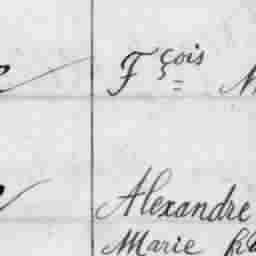 Fçois
Alexandre
Marie